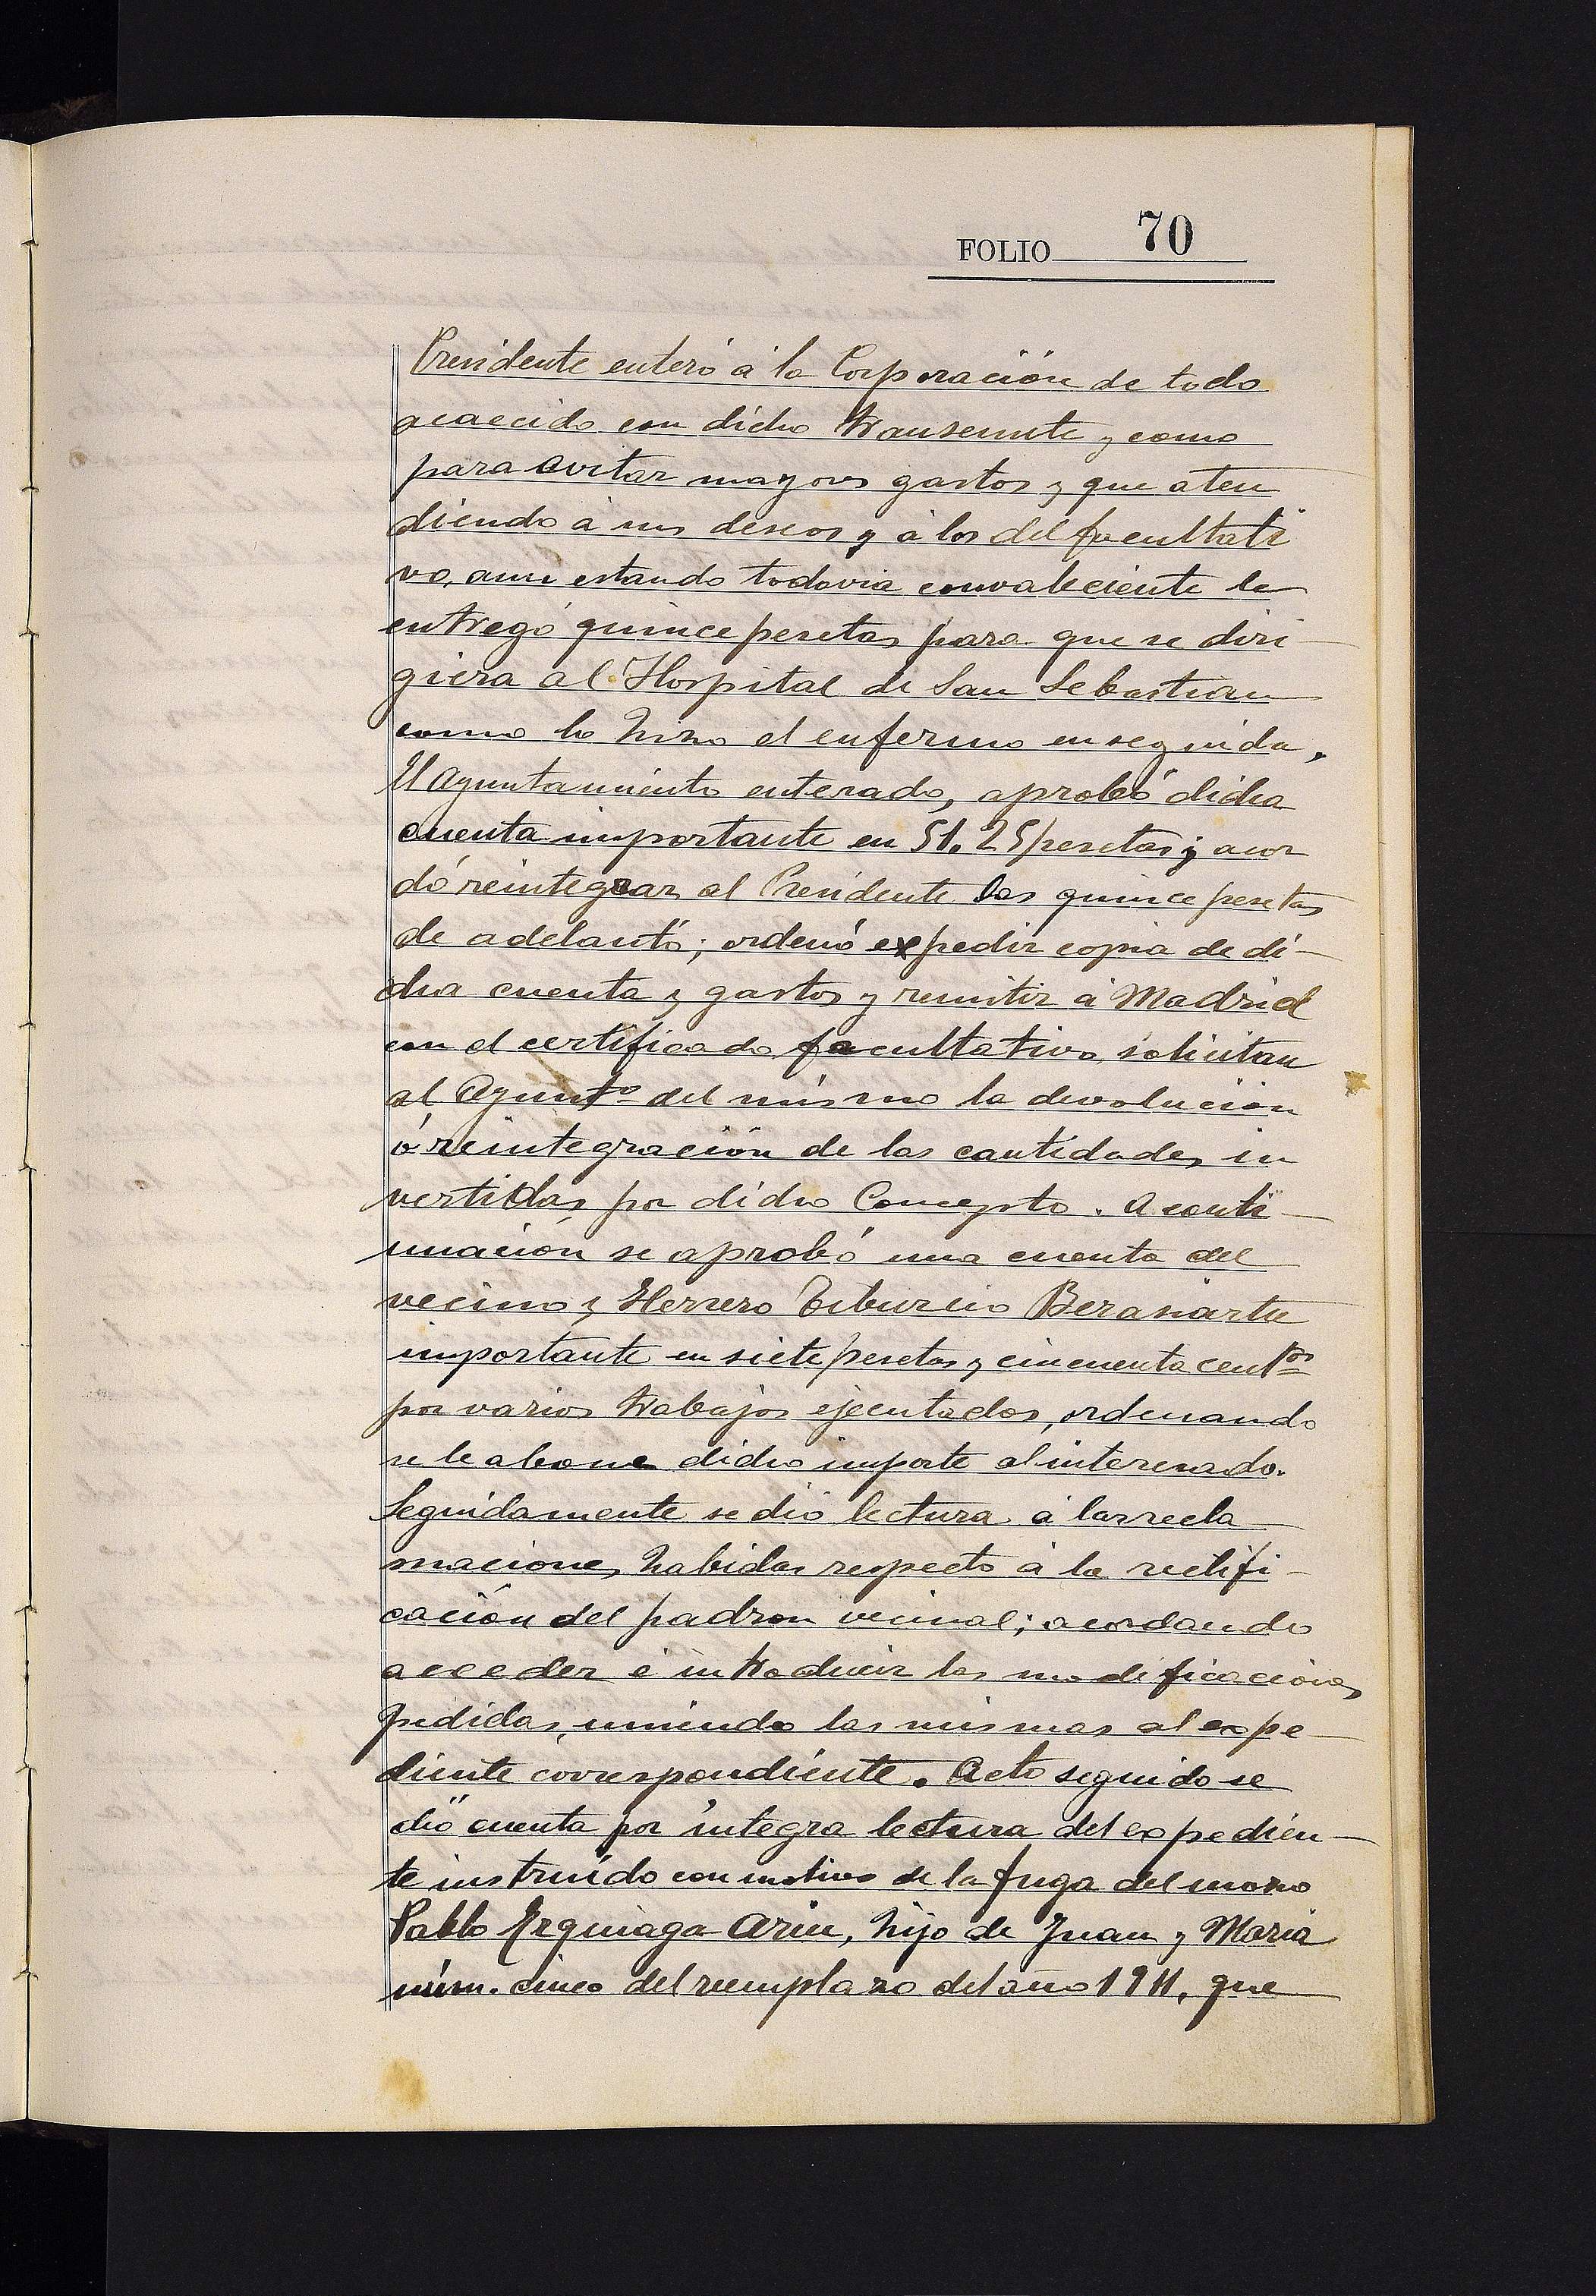 FOLIO 70
Presidente enteró á la Corporación de todo
acaecido con dicho transeunte y como
para evitar mayores gastos y que aten
diendo á sus deseos y á los del facultati
vo, aun estando todavia convaleciente le
entregó quince pesetas para que se diri-
giera al Hospital de San Sebastian
como lo hizo el enfermo enseguida,
El Ayuntamiento enterado, aprobó dicha
cuenta importante en 51.25 pesetas; y acor
dó reintegrar al Presidente las quince pesetas
de adelantó; ordenó expedir copia de di-
cha cuenta y gastos y remitir á Madrid
con el certificado facultativo, solicitan
al Ayuntº del mismo la devolucion
ó reintegración de las cantidades in
vertidas por dicho Concepto. A conti-
nuación se aprobó una cuenta del
vecino y Herrero Tiburcio Berasiartu
importante en siete pesetas y cincuenta centos
por varios trabajos ejecutados, ordenando
se le abone dicho importe al interesado.
Seguidamente se dió lectura á las recla
maciones habidas respecto á la rectifi-
cación del padron vecinal; acordando
acceder é introducir las modificaciones
pedidas, uniendo las mismas al expe-
diente correspondiente. Acto seguido se
dió cuenta por integra lectura del expedien-
te instruido con motivo de la fuga del mozo
Pablo Erquiaga Arin, hijo de Juan y Maria
núm. cinco del reemplazo del año 1911, que